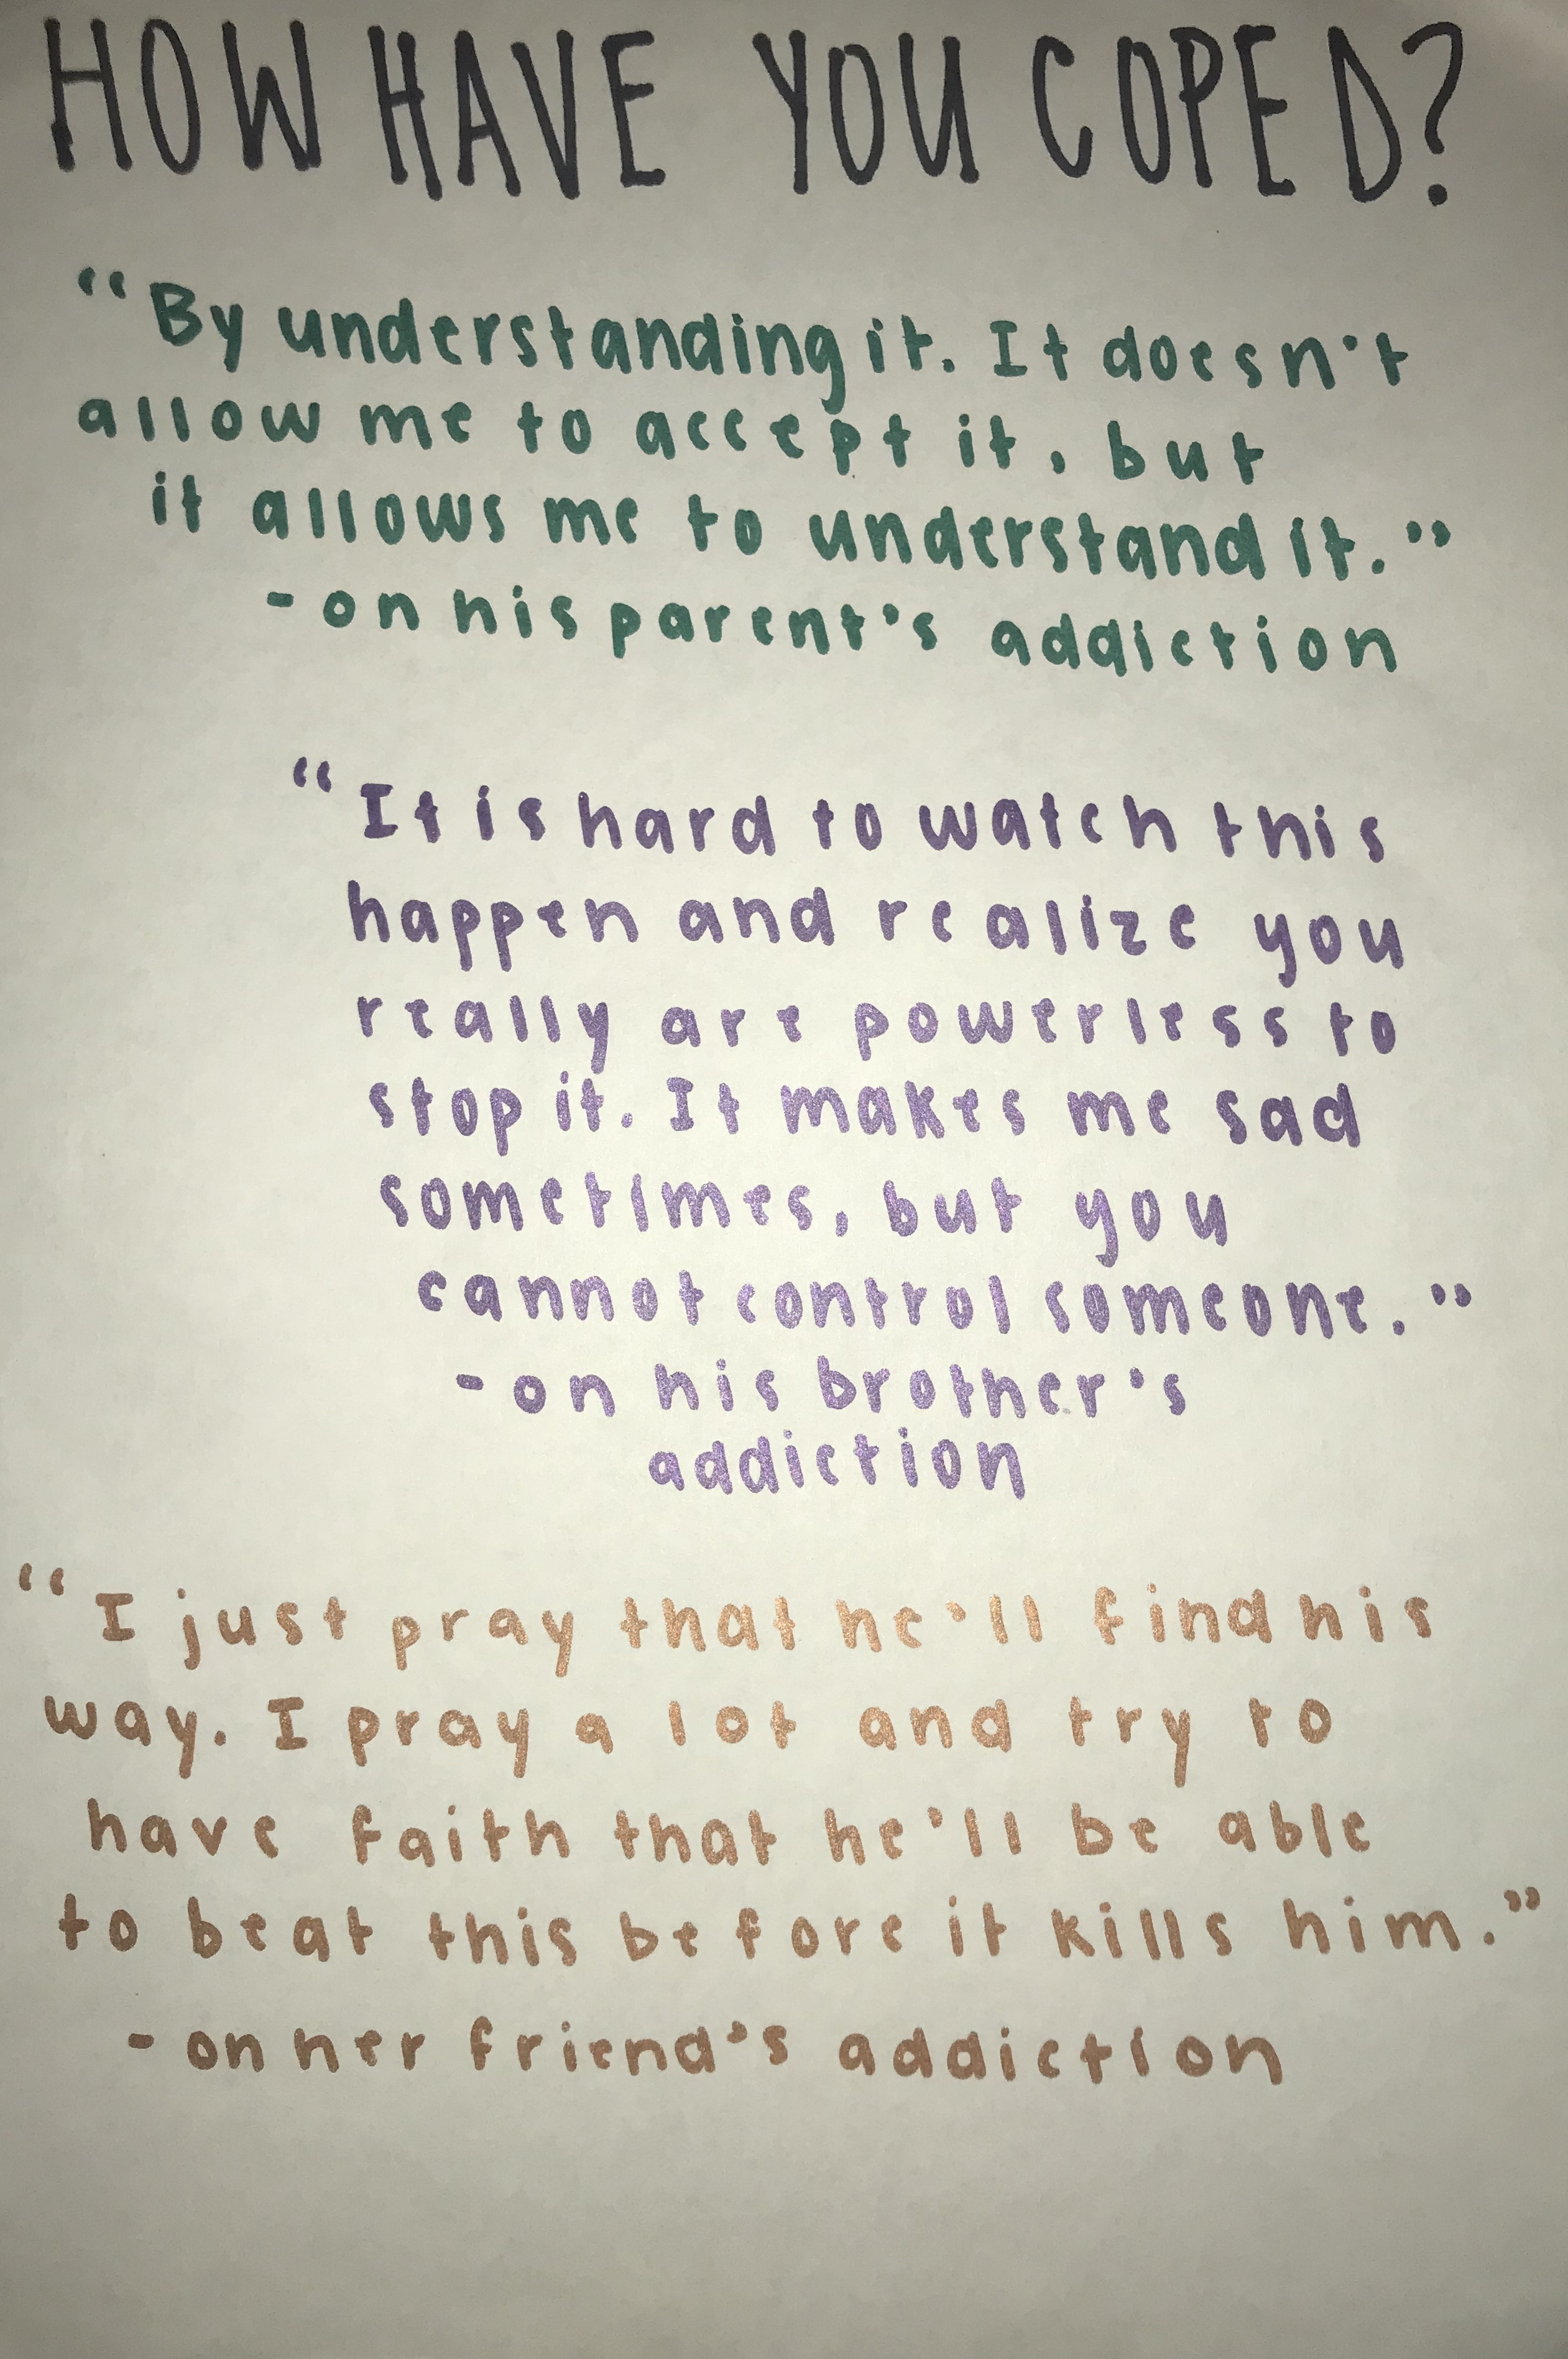 HOW HAVE YOU COPED?
“By understanding it. It doesn't
allow me to accept it, but
it allows me to understand it.”
-on his parent's addiction
“It is hard to watch this
happen and realize you
really are powerless to
stop it. It makes me sad
sometimes, but you
cannot control someone.”
-on his brother's
addiction
“I just pray that he'll find his
way. I pray a lot and try to
have faith that he'll be able
to beat this before it kills him.”
-on her friend's addiction